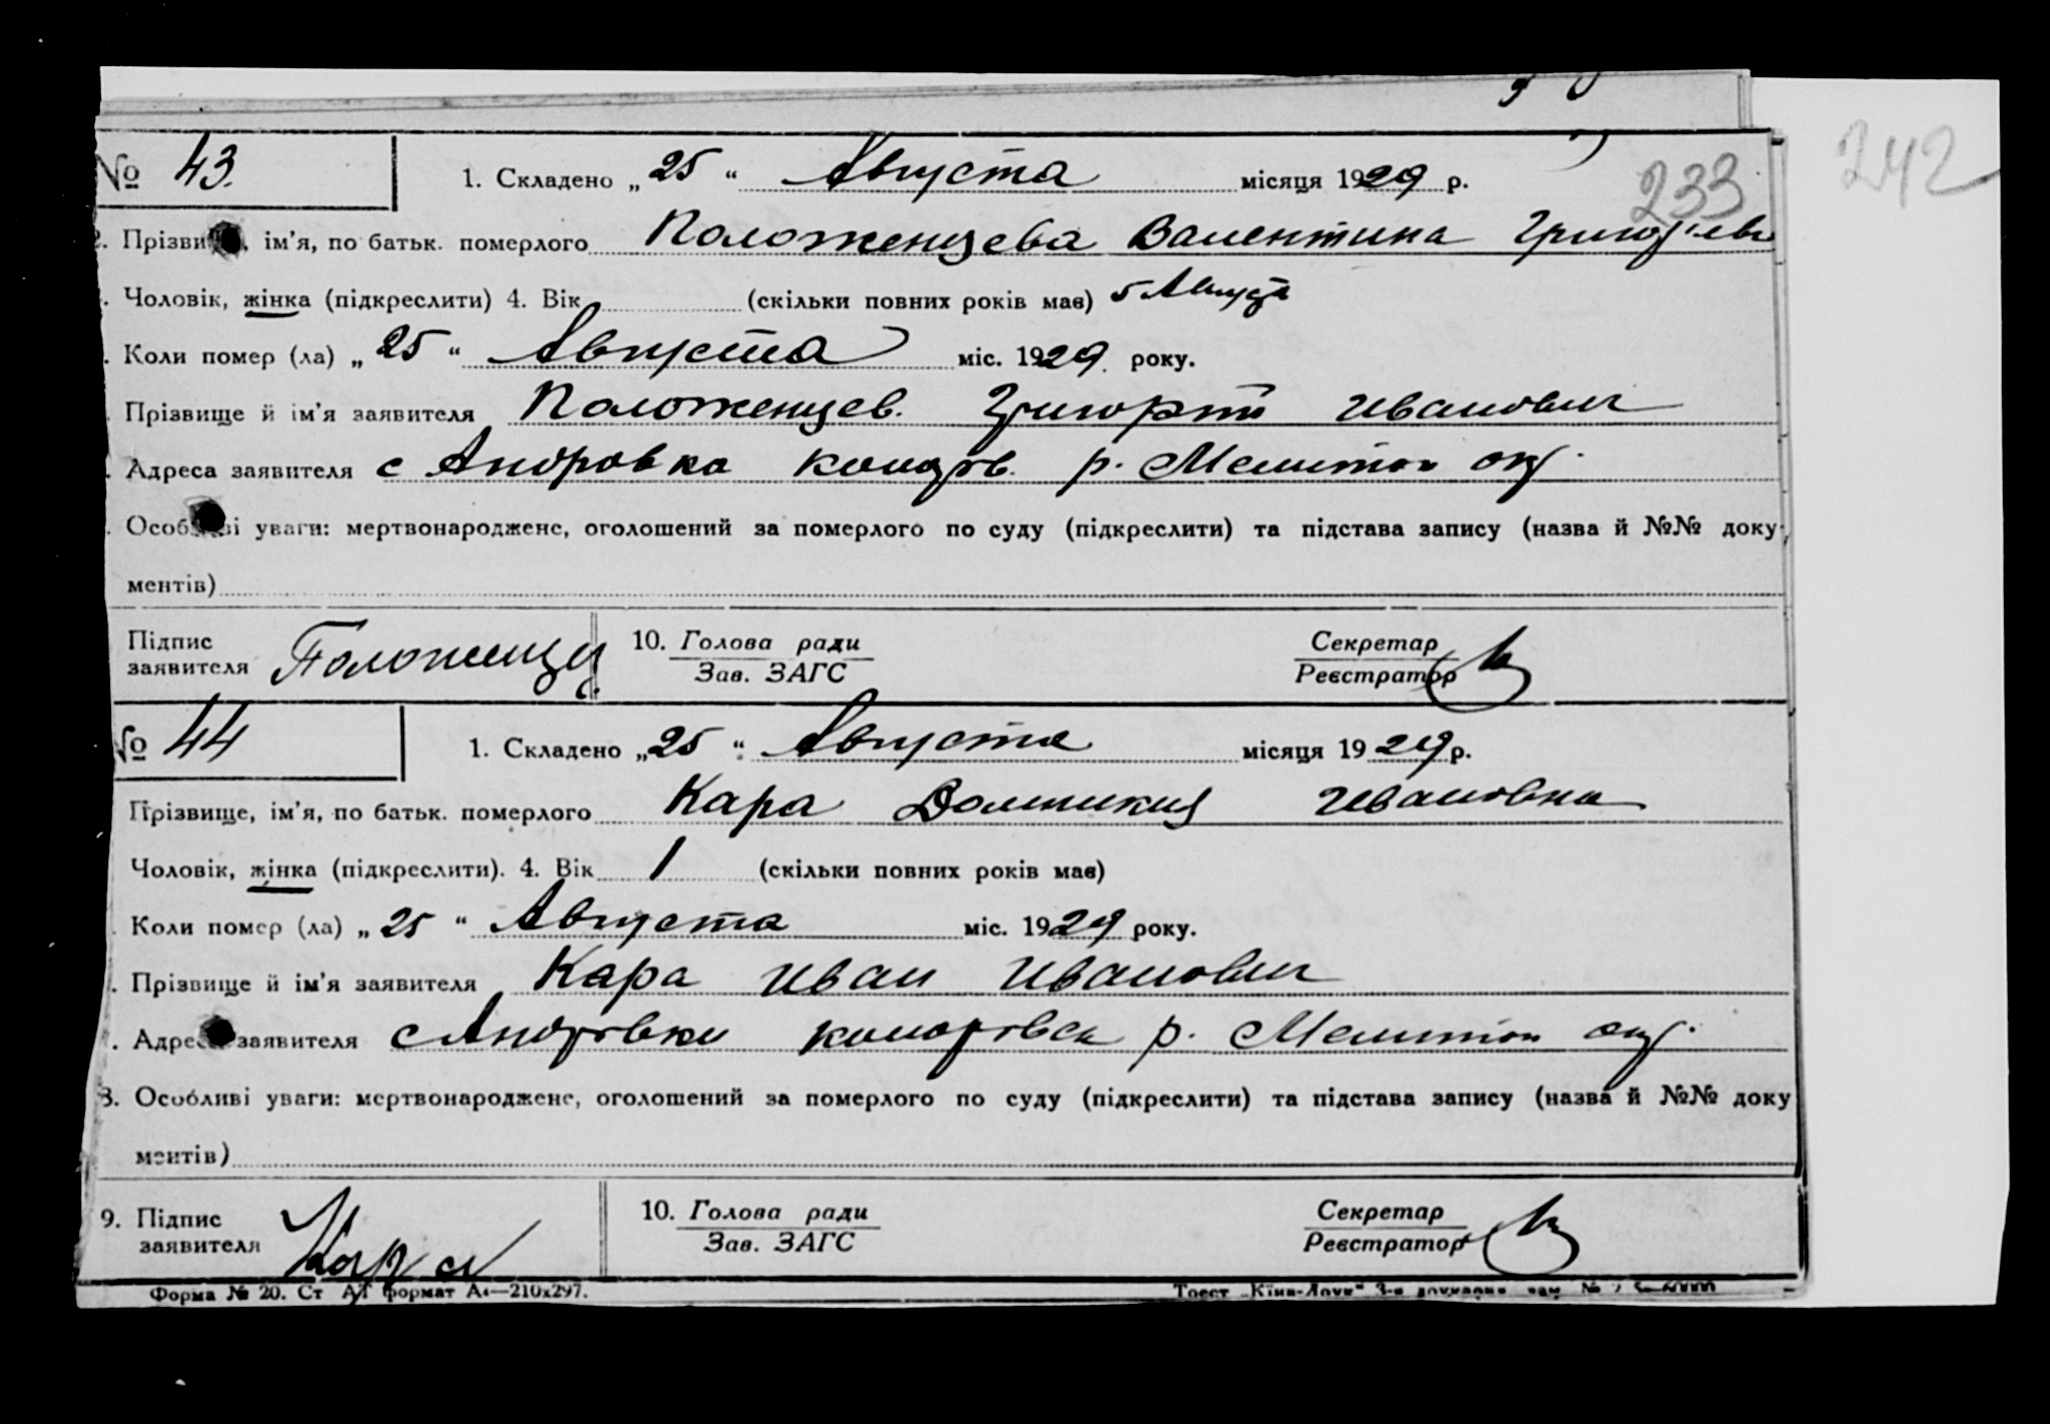 242
233
№ 43. 1. Складено „25“ Августа місяця 1929 р.
2. Прізви , ім’я, по батьк. померлого Положенцева Валентина Григорьев
Чоловік, жінка (підкреслити) 4. Вік (скільки повних років має) 5 Августа
Коли помер (ла) „25“ Августа міс. 1929. року.
Прізвище й ім’я заявителя Положенцев. Григорий Иванович
Адреса заявителя с Андровка р. Мелитоп окр.
Особ ві уваги: мертвонароджене, оголошений за померлого по суду (підкреслити) та підстава запису (назва й №№ доку-
ментів)
Підпис заявителя Положенцев 10. Голова ради Зав. ЗАГС Секретар Реєстратор
№ 44 1. Складено „25“ Августа місяця 1929 р.
Прізвище, ім’я, по батьк. померлого Кара Ивановна
Чоловік, жінка (підкреслити). 4. Вік 1 (скільки повних років має)
Коли помер (ла) „25“ Августа міс. 1929 року.
Прізвище й ім’я заявителя Кара Иван Иванович
Адреса заявителя с Андровки р. Мелитоп окр.
8. Особливі уваги: мертвонароджене, оголошений за померлого по суду (підкреслити) та підстава запису (назва й №№ доку
ментів)
9. Підпис заявителя Кара 10. Голова ради Зав. ЗАГС Секретар Реєстратор
Форма № 20. Ст АТ формат А4—210x297.